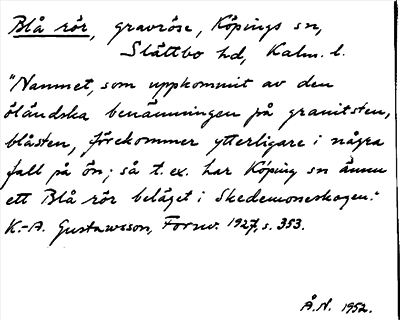 Blå rör, gravröse, Köpings sn,
Slättbo hd, Kalm. l.
"Namnet, som uppkommit av den
öländska benämningen på granitsten,
blåsten, förekommer ytterligare i några
fall på ön; så t. ex. har Köping sn ännu
ett Blå rör beläget i Skedemoseskogen."
K.-A. Gustawsson, Fornv. 1927, s. 353.
Å.N. 1952.